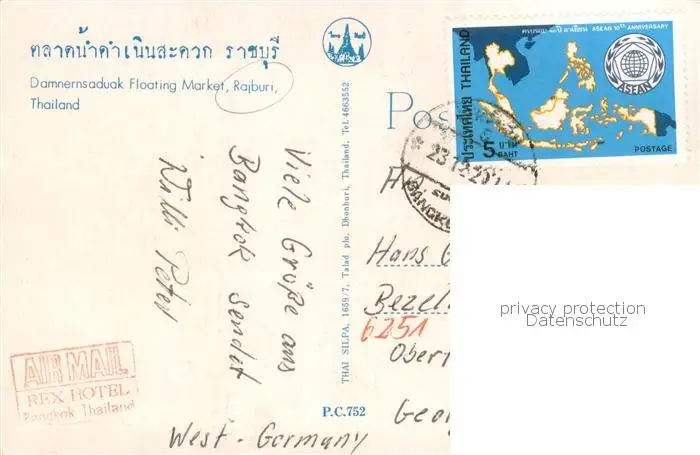 ตลาดน้ำดำเนินสะดวก ราชบุรี
Damnernsaduak Floating Market, Rajburi,
Thailand
Viele Grüße aus
Bangkok sendet
Willi Peter
AIR MAIL
REX HOTEL
Bangkok Thailand
THAI SILPA, 1659/7, Talad plu, Dhonburi, Thailand, Tel. 4663552
P.C.752
ASEAN 10TH ANNIVERSARY
ประเทศไทย THAILAND
ASEAN
5 บาท
BAHT
POSTAGE
Hans
6251
West-Germany
privacy protection
Datenschutz